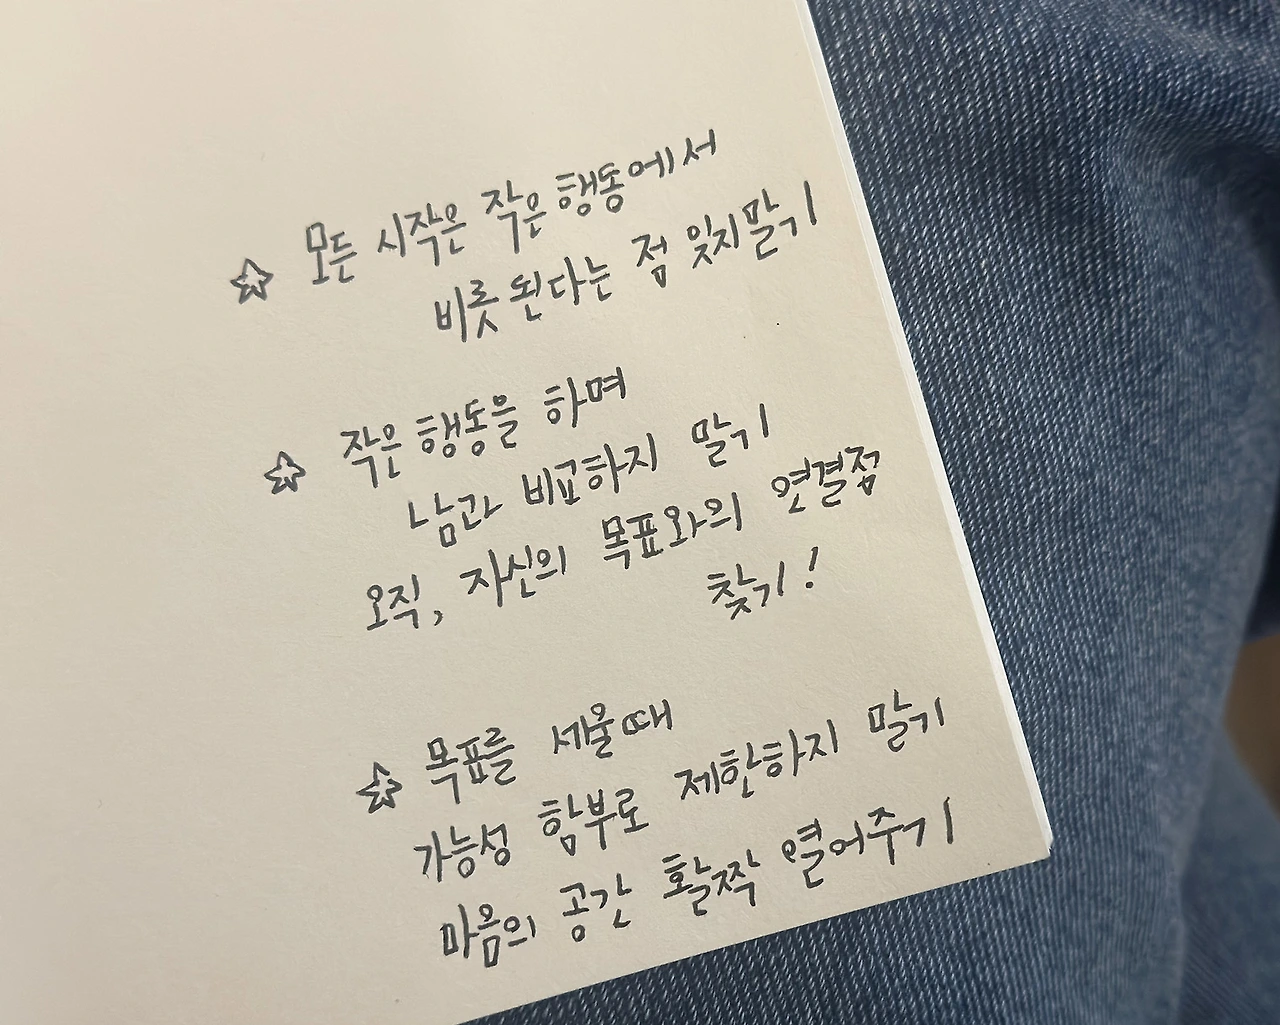 ☆ 모든 시작은 작은 행동에서
비롯된다는 점 잊지말기
☆ 작은 행동을 하며
남과 비교하지 말기
오직, 자신의 목표와의 연결점
찾기!
☆ 목표를 세울때
가능성 함부로 제한하지 말기
마음의 공간 활짝 열어주기